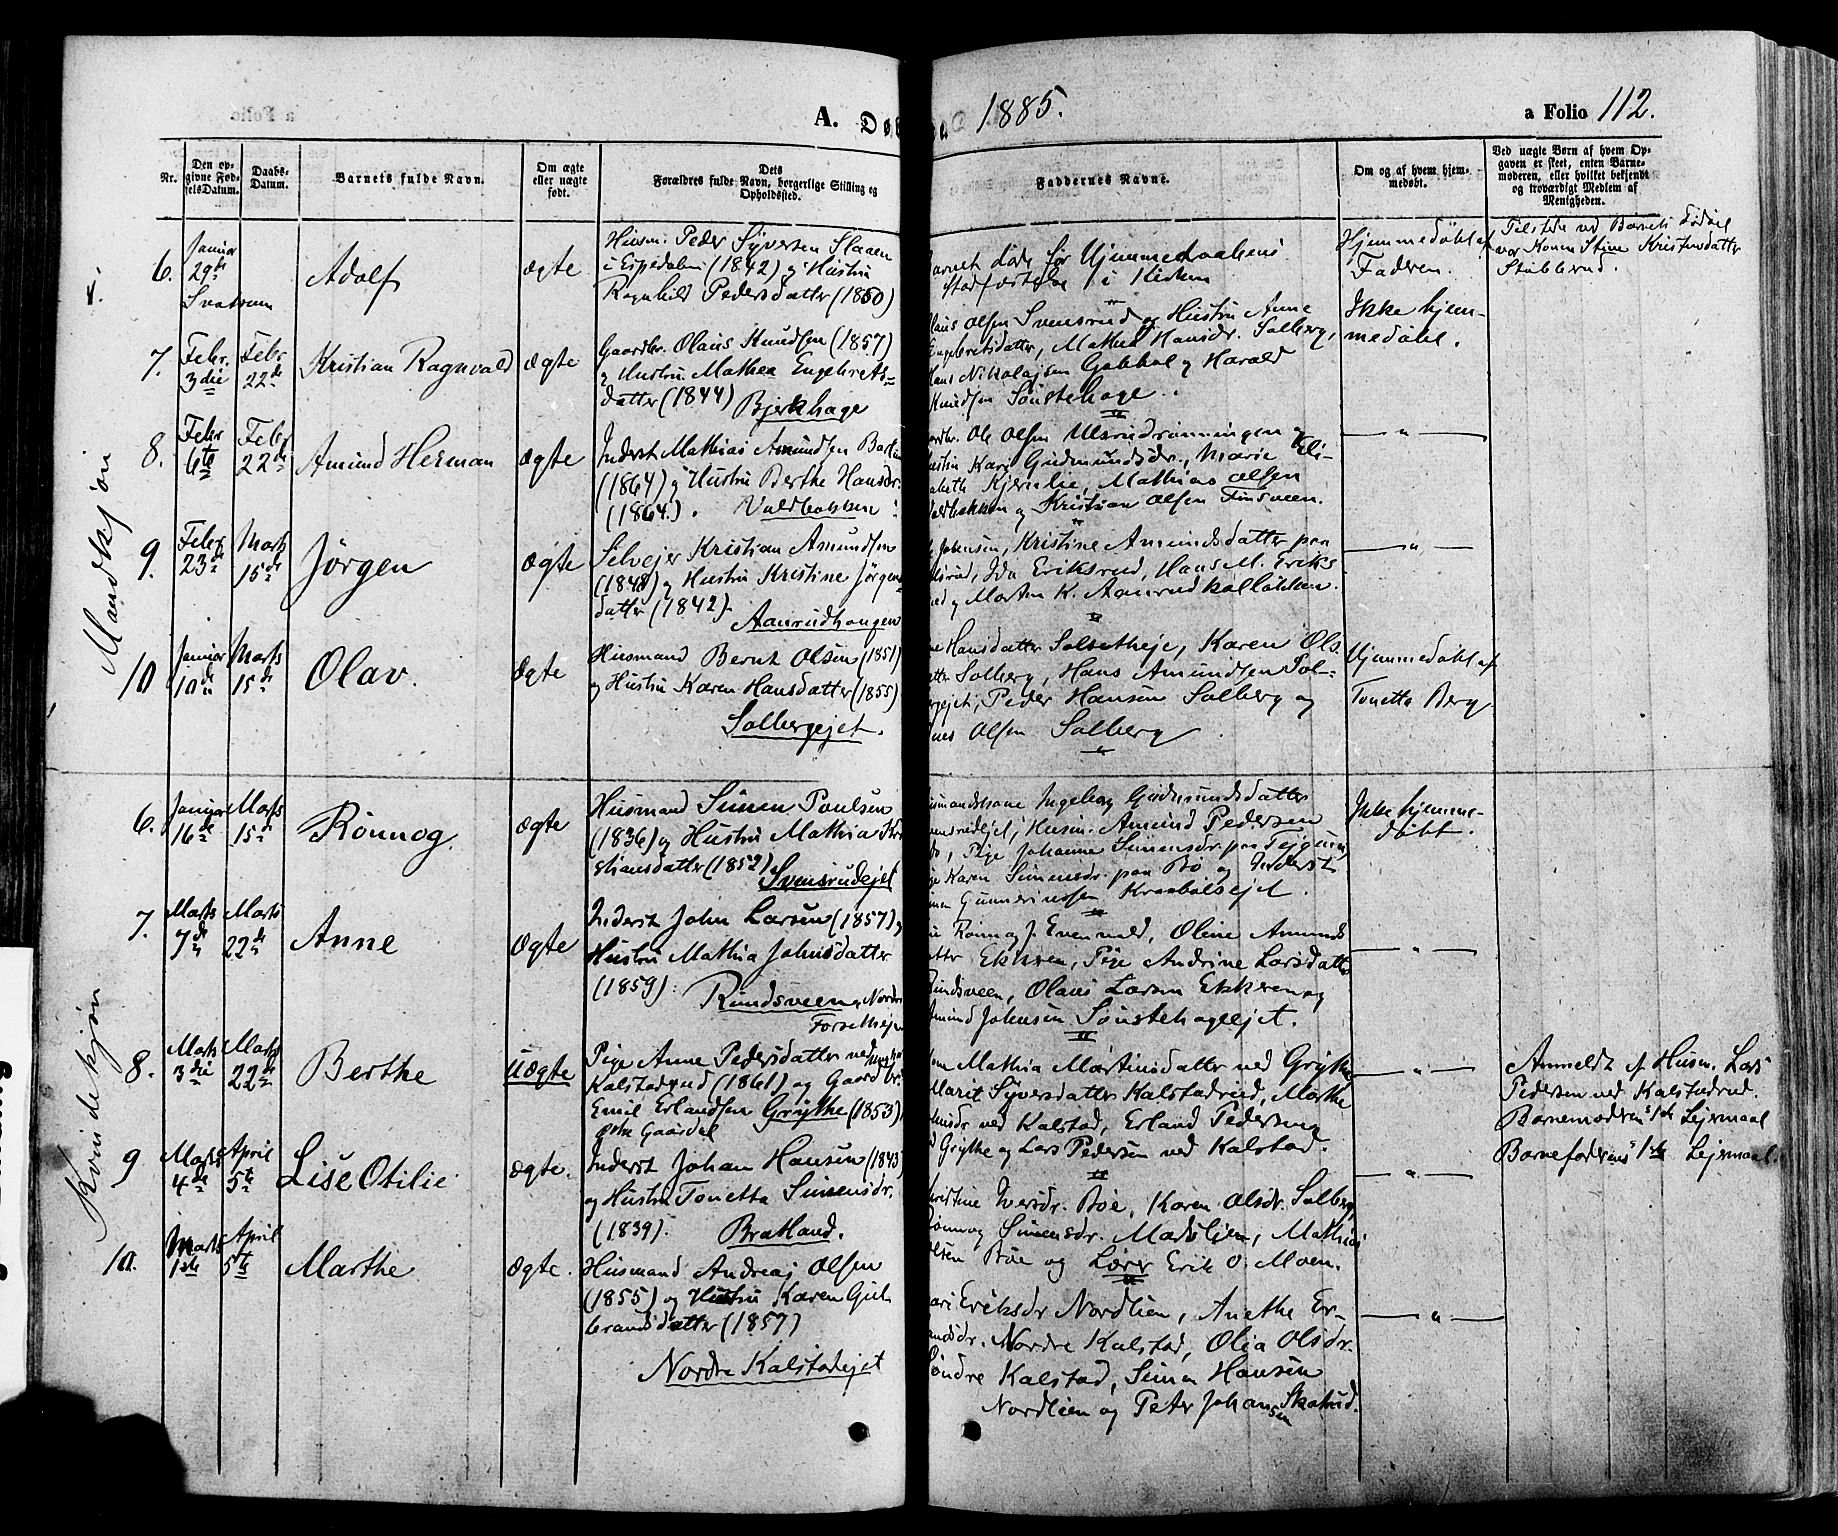 A. Dø
1885.
a Folio 112.
Nr.
Den op-
givne Fød-
selsDatum.
Daabs-
Datum.
Barnets fulde Navn.
Om ægte
eller uægte
født.
Dets
Forældres fulde Navn, borgerlige Stilling og
Opholdssted.
Faddernes Navne.
Om og af hvem hjem-
medøbt.
Ved uægte Børn af hvem Op-
gaven er skeet, enten Barne-
moderen, eller hvilket bekjendt
og troværdigt Medlem af
Menigheden.
Mandkjøn
6.
Januar
29de
Svatsum
Adolf
Ægte
Husm. Peder Syversen Slaaen
i Espedalen (1842) og Hustru
Ragnhild Pedersdatter (1850)
Barnet døde før Hjemmedaabens
Stadfæstelse i Kirken
Hjemmedøbt af
Faderen.
Tilstede ved Barnets Fødsel
var Konen Stine Kristensdatter
Stubberud.
7.
Febr.
3die
Febr
22de
Kristian Ragnvald
Ægte
Gaardbr. Olaus Knudsen (1857)
og Hustru Mathea Engebrets-
datter (1844) Bjerkhage
Olaus Olsen Svensrud og Hustru Anne
Engebretsdatter, Mathea Hansdr. Solberg,
Hans Nikolajsen Gakkol og Harald
Knudsen Sønstehage.
Ikke hjem-
medøbt.
8.
Febr
6te
Febr
22de
Amund Herman
Ægte
Inderst Mathias Amundsen
(1864) og Hustru Berthe Hansdr.
(1864). Valdbakken
Gaardbr. Ole Olsen Ulsrudrønningen og
Hustru Kari Gudmundsdr., Marie Eli-
sabeth Kjernlie, Mathias Olsen
Valdbakken og Kristian Olsen Finsveen.
— " —
9.
Febr
23de
Marts
15de
Jørgen
Ægte
Selvejer Kristian Amundsen
(1848) og Hustru Kristine Jørgens-
datter (1842)
Aanrudhaugen
Johnsen, Kristine Amundsdatter paa
Ida Eriksrud, Hans M. Eriks
rud og Morten K. Aanrudkølløkken.
— " —
10
Januar
10de
Marts
15de
Olav.
Ægte
Husmand Bernt Olsen (1851)
og Hustru Karen Hansdatter (1855)
Solbergejet.
Hansdatter Solsetheje, Karen Ols-
datter Solberg, Hans Amundsen Sol-
bergejet, Peder Hansen Solberg og
Olsen Solberg
Hjemmedøbt af
Tonetta Berg
Kvindekjøn
6.
Januar
16de
Marts
15de
Rønnog.
Ægte
Husmand Simen Poulsen
(1836) og Hustru Mathia Kri-
stiansdatter (1852)
Svensrudejet
Husmandskone Ingeborg Gudmundsdatter
Svensrudejet, Husm. Amund Pedersen
Pige Johanne Simensdr. paa Fejgum,
Pige Karen Simensdr. paa Bø og Inderst
Simen Gunnerussen Kraabølsejet.
Ikke hjemme-
døbt.
7.
Marts
7de
Marts
22de
Anne
Ægte
Inderst John Larsen (1857) og
Hustru Mathia Johnsdatter
(1859). Rundsveen Nordre
Forsetheje
Rønnog J. Evenvold, Oline Amunds
datter Ekkren, Pige Andrine Larsdatter
Rundsveen, Olaus Larsen Ekkren og
Amund Johnsen Sønstehageejet.
— " —
8.
Marts
3die
Marts
22de
Berthe
Uægte
Pige Anne Pedersdatter ved
Kalstadrud (1861) og Gaardbr.
Emil Erlandsen Grytke (1853)
Østre Gausdal
Mathia Martinsdatter ved Grytke,
Marit Syversdatter Kalstadrud, Marthe
ved Kalstad, Erland Pedersen
Grytke og Lars Pedersen ved Kalstad.
— " —
Anmeldt af Husm. Lars
Pedersen ved Kalstadrud.
Barnemoderens 1ste Lejermaal
Barnefaderens 1ste Lejermaal.
9
Marts
4de
April
5te
Lise Otilie
Ægte.
Inderst Johan Hansen (1843)
og Hustru Tonetta Simensdr.
(1839). Bratland.
Kristine Iversdr. Bøe, Karen Olsdr. Solberg,
Rønnog Simensdr. Madslien, Mathias
Olsen Bøe og Lærer Erik O. Moen.
— " —
10.
Marts
1ste
April
5te
Marthe
Ægte.
Husmand Andreas Olsen
(1855) og Hustru Karen Gul-
brandsdatter (1857)
Nordre Kalstadejet
Kari Eriksdr Nordlien, Anethe Er-
landsdr. Nordre Kalstad, Olia Olsdr.
Søndre Kalstad, Simen Hansen
Nordlien og Peter Johansen Skabrud.
— " —